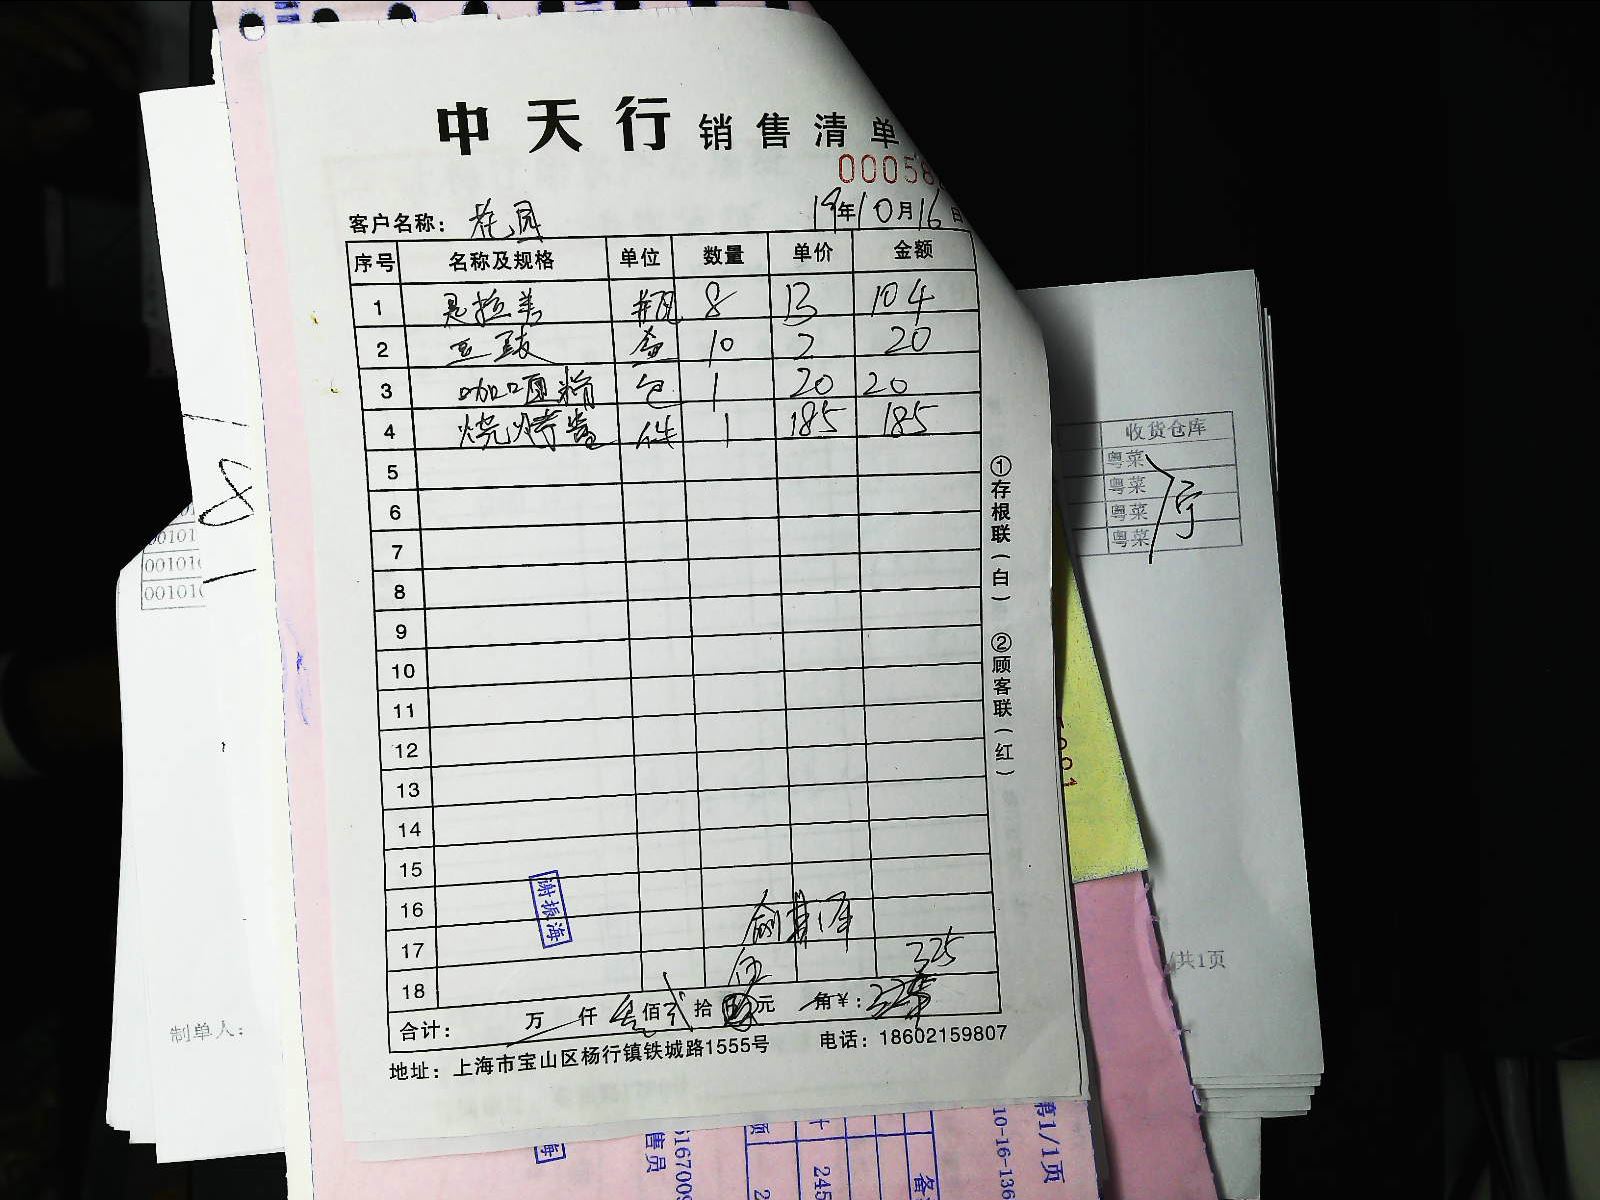 中天行 销售清单
00058
客户名称： 花园 19年10月16日
序号 名称及规格 单位 数量 单价 金额
1 瓶 8 13 104
2 豆豉 盒 10 2 20
3 咖喱粉 包 1 20 20
4 烧烤酱 件 1 185 185
5
6
7
8
9
10
11
12
13
14
15
16
17
18
325
伍
合计： 万 仟 叁佰贰拾 元 角¥：
地址：上海市宝山区杨行镇铁城路1555号 电话：18602159807
谢振海
①存根联（白） ②顾客联（红）
收货仓库
粤菜
粤菜
粤菜
粤菜
宁
8
00101
00101
00101
制单人：
/共1页
第1/1页
10-16-136
售员
245
海